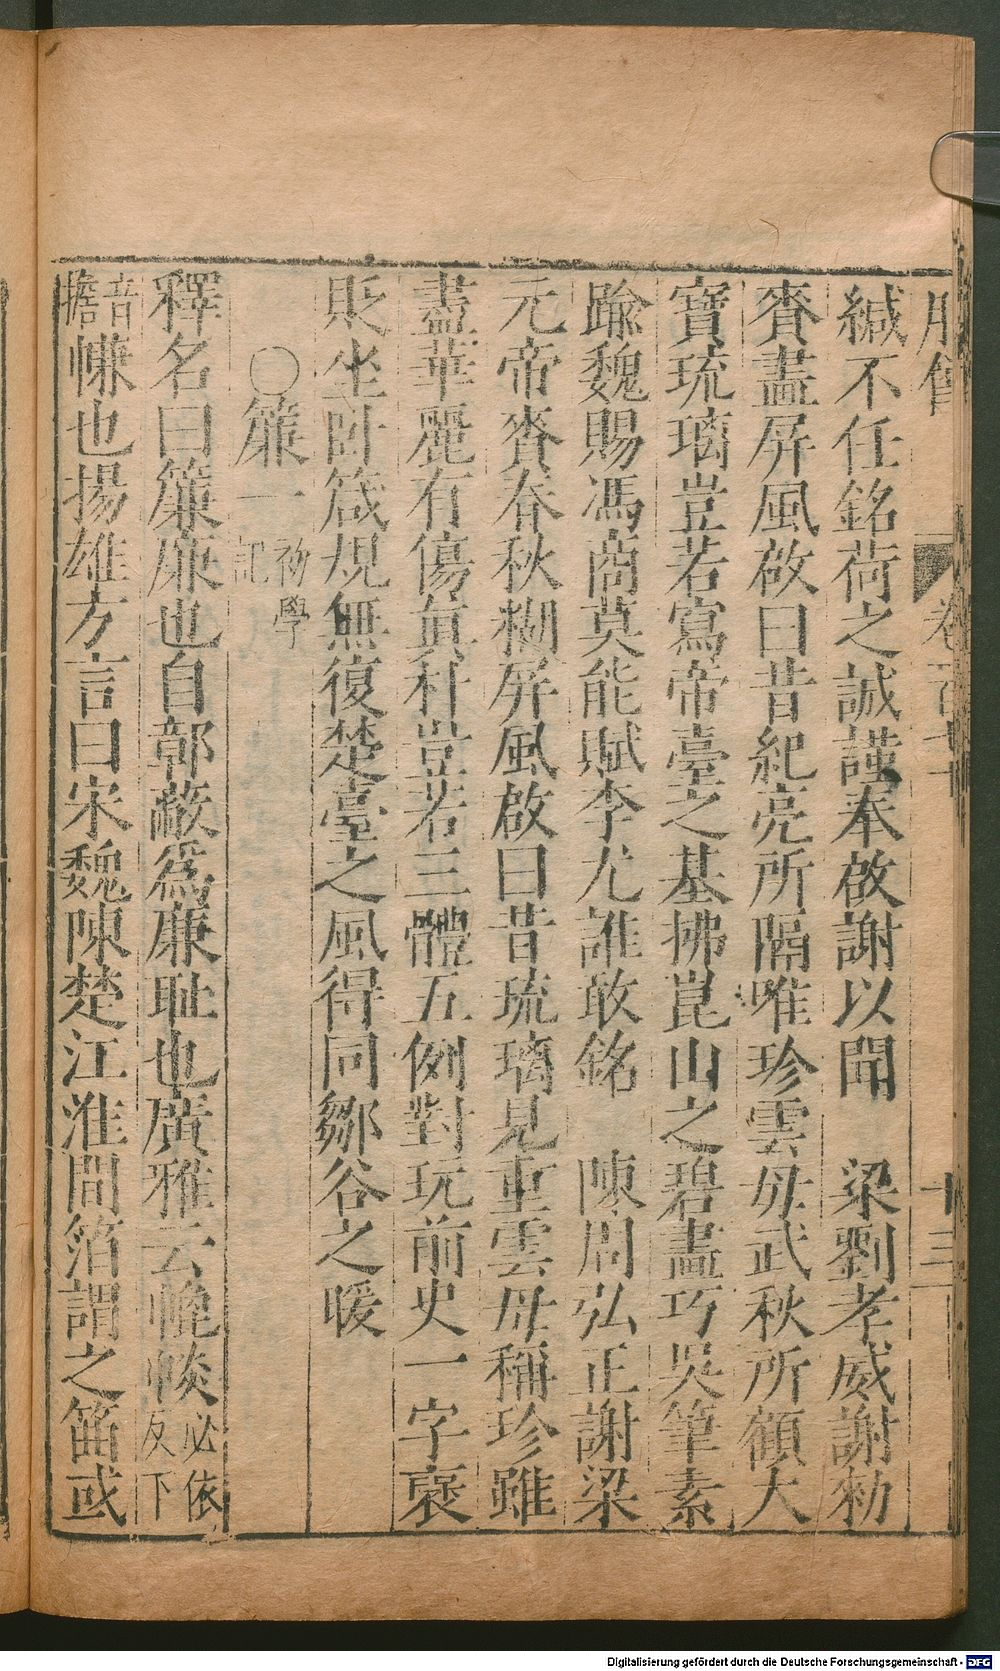 緘不任銘荷之誠謹奉啟謝以聞　梁劉孝威謝勑
賚畫屏風啟曰昔紀亮所隔唯珍雲母武秋所顧大
寶琉璃豈若寫帝臺之基拂崑山之碧畫巧吳筆素
踰魏賜馮商莫能賦李尤誰敢銘　陳周弘正謝梁
元帝賚春秋糊屏風啟曰昔琉璃見重雲母稱珍雖
盡華麗有傷真朴豈若三體五例對玩前史一字褒
貶坐卧箴規無復楚臺之風得同鄒谷之暖
○簾一 初學記
釋名曰簾廉也自鄣蔽為廉恥也廣雅云㡓㡘 必依反下
音㡘也揚雄方言曰宋魏陳楚江淮間箔謂之笛或
十三
Digitalisierung gefördert durch die Deutsche Forschungsgemeinschaft - DFG